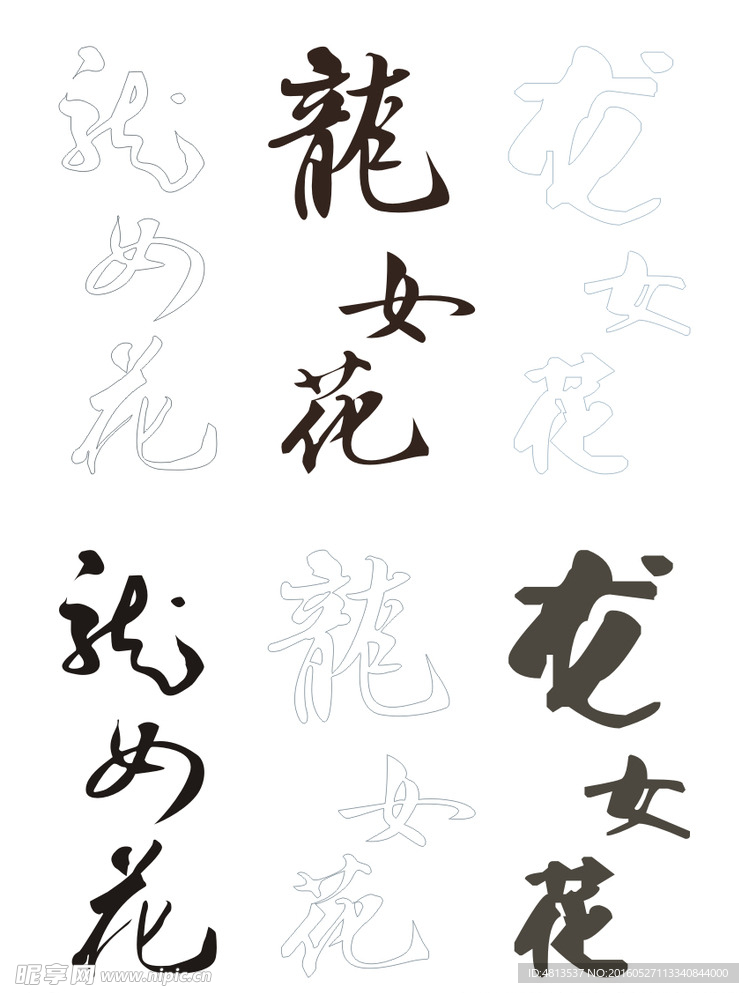 龙女花
龍女花
龙女花
龙女花
龍女花
龙女花
昵享网 www.nipic.cn
ID:4813537 NO:20160527113340844000